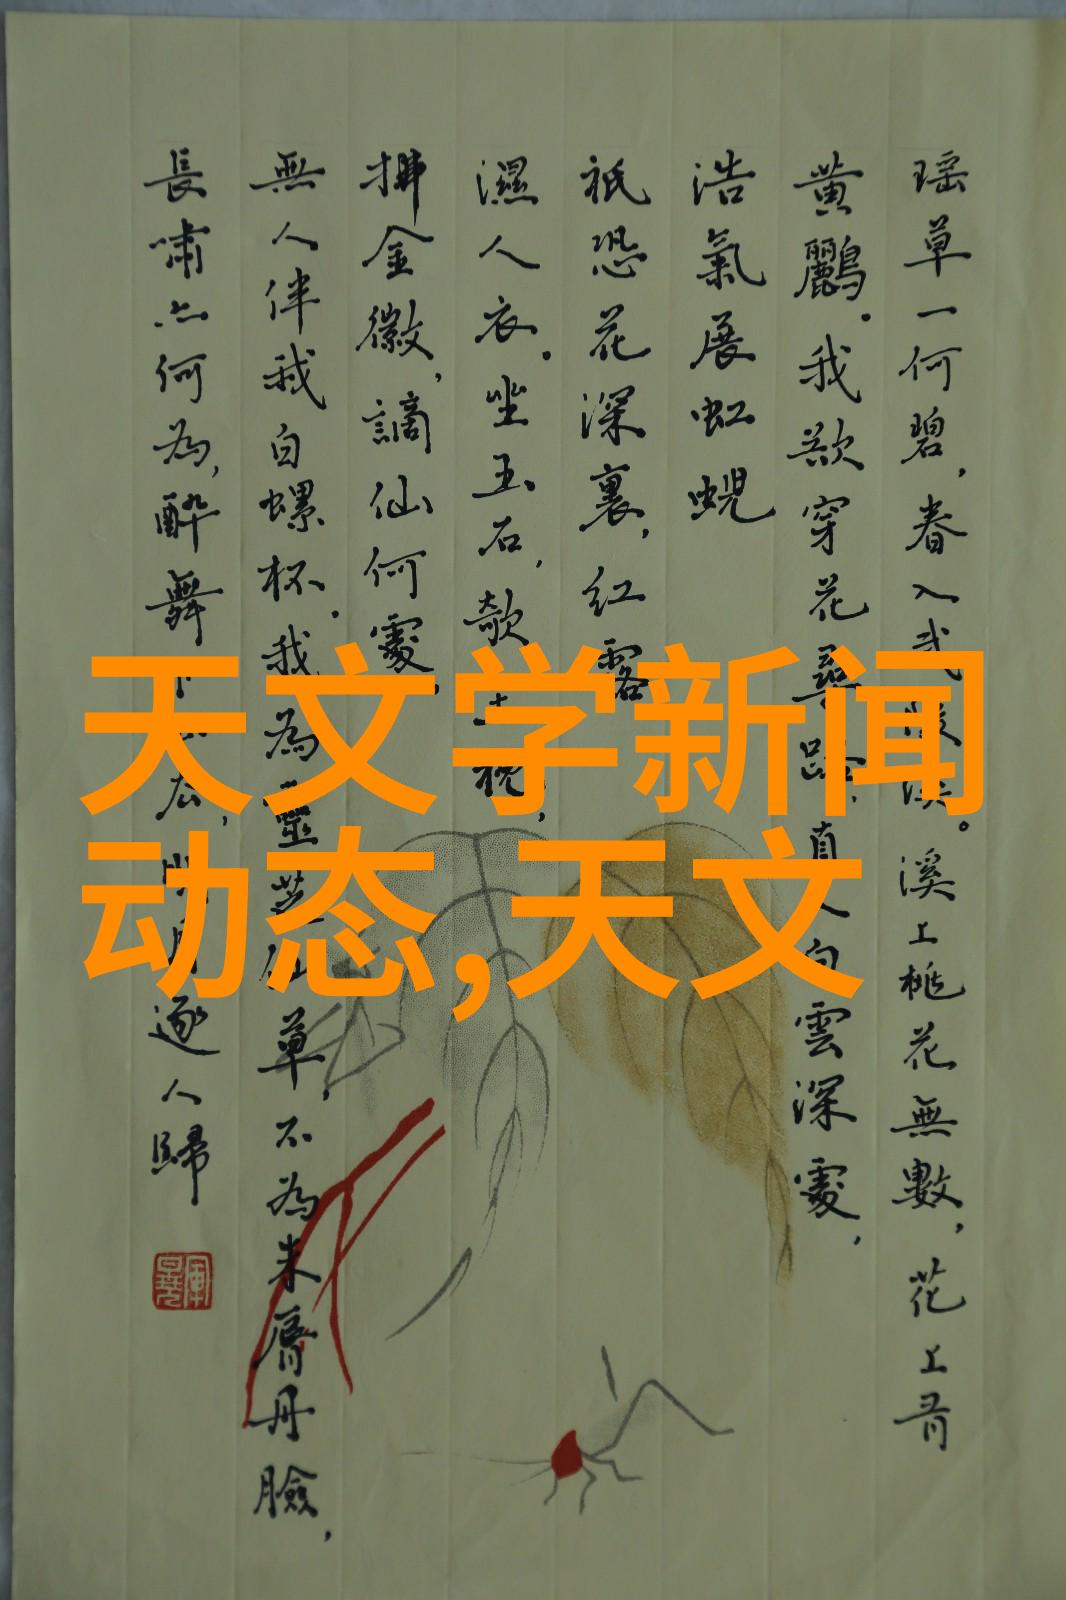 瑶草一何碧,春入武陵溪。溪上桃花無數,花上有
黄鸝。我欲穿花尋路,直入白雲深處,
浩氣展虹蜺
祇恐花深裏,紅露
濕人衣。坐玉石,欹玉枕,
拂金徽,謫仙何處,
無人伴我白螺杯。我為靈芝仙草,不為朱脣丹臉,
長嘯亦何為,醉舞下山去,明月逐人歸
天文学新闻
动态,天文